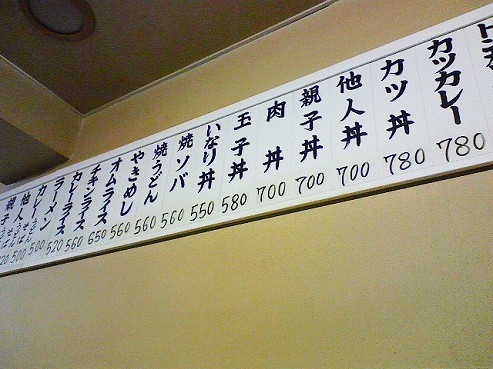 カツカレー 780
カツ丼 780
他人丼 700
親子丼 700
肉丼 700
玉子丼 580
いなり丼 550
焼ソバ 560
焼うどん 560
やきめし 560
オムライス 560
チキンライス 650
カレーライス 560
ラーメン 520
カレー 500
他人 500
親子